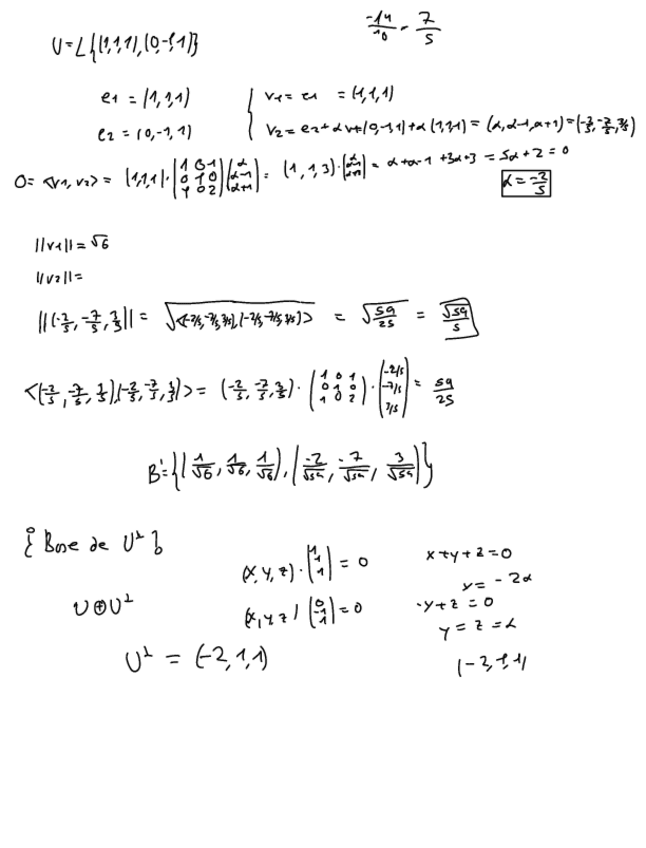 -14/10 = -7/5
U = L{(1,1,1),(0,-1,1)}
e1 = (1,1,1)
e2 = (0,-1,1)
v1 = e1 = (1,1,1)
v2 = e2 + αv1 = (0,-1,1) + α(1,1,1) = (α, α-1, α+1) = (-2/5, -7/5, 3/5)
0 = <v1, v2> = (1,1,1)·(1 0 1 / 0 1 0 / 1 0 2)(α / α-1 / α+1) = (1,1,3)·(α / α-1 / α+1) = α+α-1+3α+3 = 5α+2 = 0
α = -2/5
||v1|| = √6
||v2|| =
||(-2/5, -7/5, 3/5)|| = √<(-2/5,-7/5,3/5),(-2/5,-7/5,3/5)> = √59/25 = √59/5
<(-2/5, -7/5, 3/5),(-2/5, -7/5, 3/5)> = (-2/5, -7/5, 3/5)·(1 0 1 / 0 1 0 / 1 0 2)·(-2/5 / -7/5 / 3/5) = 59/25
B' = {(1/√6, 1/√6, 1/√6), (-2/√59, -7/√59, 3/√59)}
¿ Base de U⊥ ?
(x,y,z)·(1 / 1 / 1) = 0
x+y+z=0
x = -2α
U⊕U⊥
(x,y,z)(0 / -1 / 1) = 0
-y+z=0
y = z = α
U⊥ = (-2,1,1)
(-2,1,1)